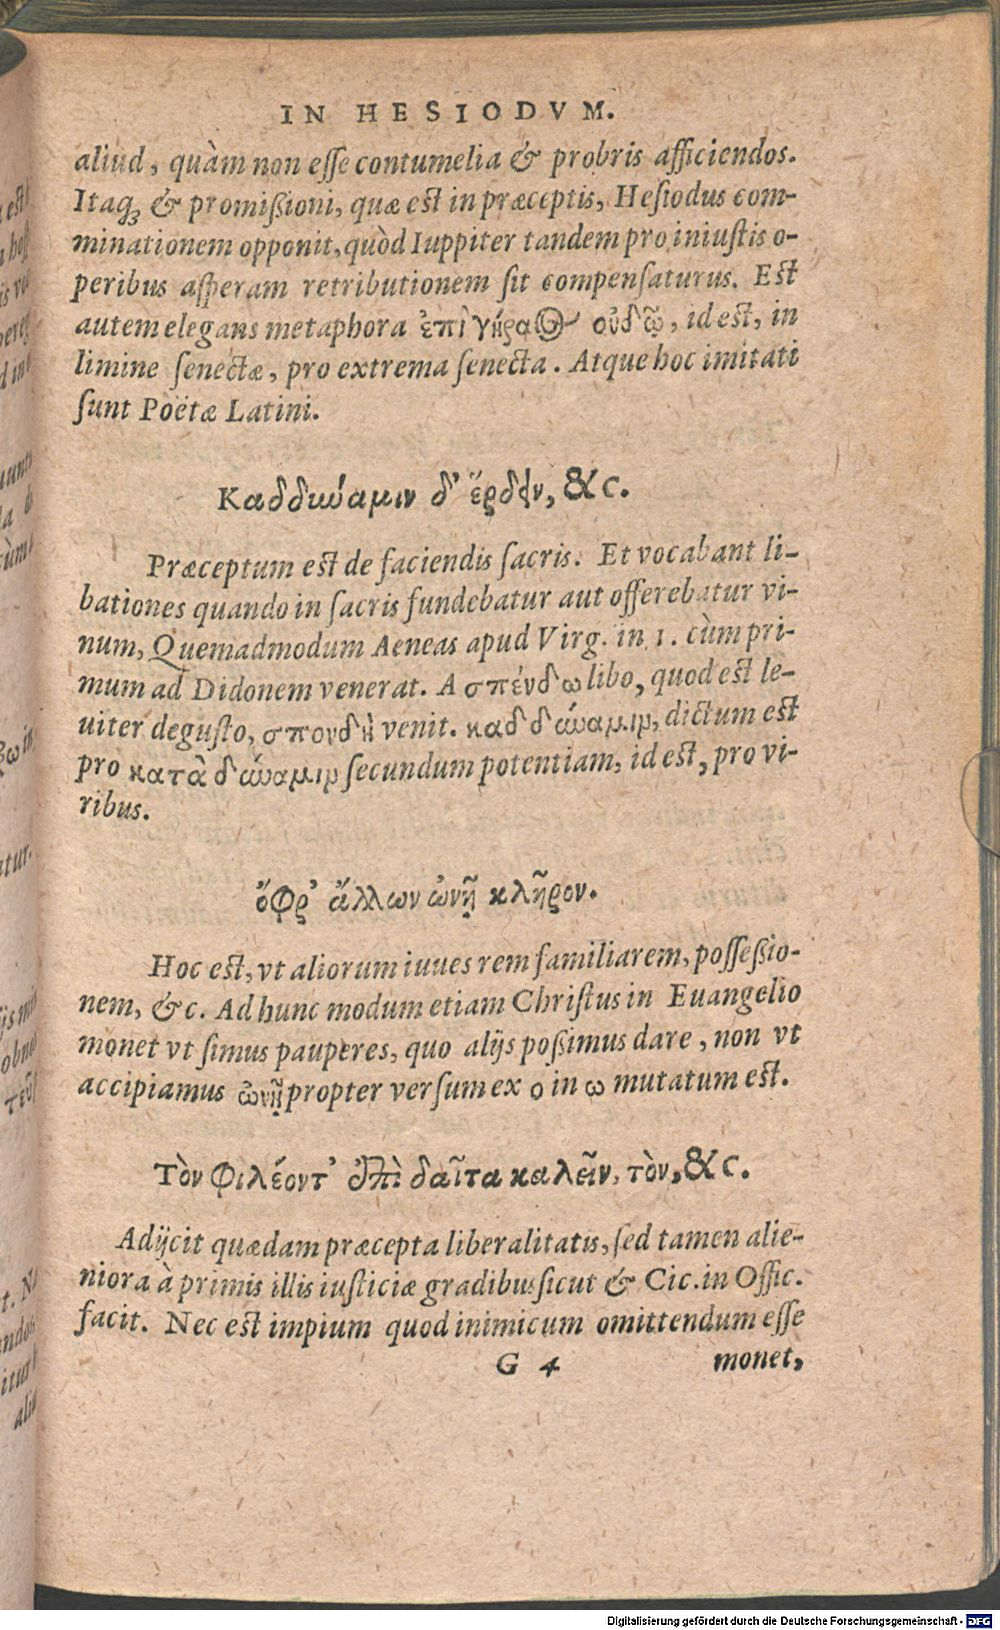 IN HESIODVM.
aliud, quàm non esse contumelia & probris afficiendos.
Itaqꝫ & promißioni, quæ est in præceptis, Hesiodus com-
minationem opponit, quòd Iuppiter tandem pro iniustis o-
peribus asperam retributionem sit compensaturus. Est
autem elegans metaphora ἐπὶ γήραος οὐδῷ, id est, in
limine senectæ, pro extrema senecta. Atque hoc imitati
sunt Poëtæ Latini.
Καδδύναμιν δ' ἔρδειν, &c.
Præceptum est de faciendis sacris. Et vocabant li-
bationes quando in sacris fundebatur aut offerebatur vi-
num, Quemadmodum Aeneas apud Virg. in 1. cùm pri-
mum ad Didonem venerat. A σπένδω libo, quod est le-
uiter degusto, σπονδὴ venit. καδ δύναμιν, dictum est
pro κατὰ δύναμιν secundum potentiam, id est, pro vi-
ribus.
ὄφρ' ἄλλων ὠνῇ κλῆρον.
Hoc est, vt aliorum iuues rem familiarem, possessßio-
nem, &c. Ad hunc modum etiam Christus in Euangelio
monet vt simus pauperes, quo alijs poßimus dare, non vt
accipiamus ὠνῇ propter versum ex ο in ω mutatum est.
Τὸν φιλέοντ' ἐπὶ δαῖτα καλεῖν, τὸν, &c.
Adijcit quædam præcepta liberalitatis, sed tamen alie-
niora à primis illis iusticiæ gradibus sicut & Cic. in Offic.
facit. Nec est impium quod inimicum omittendum esse
G 4 monet,
Digitalisierung gefördert durch die Deutsche Forschungsgemeinschaft - DFG